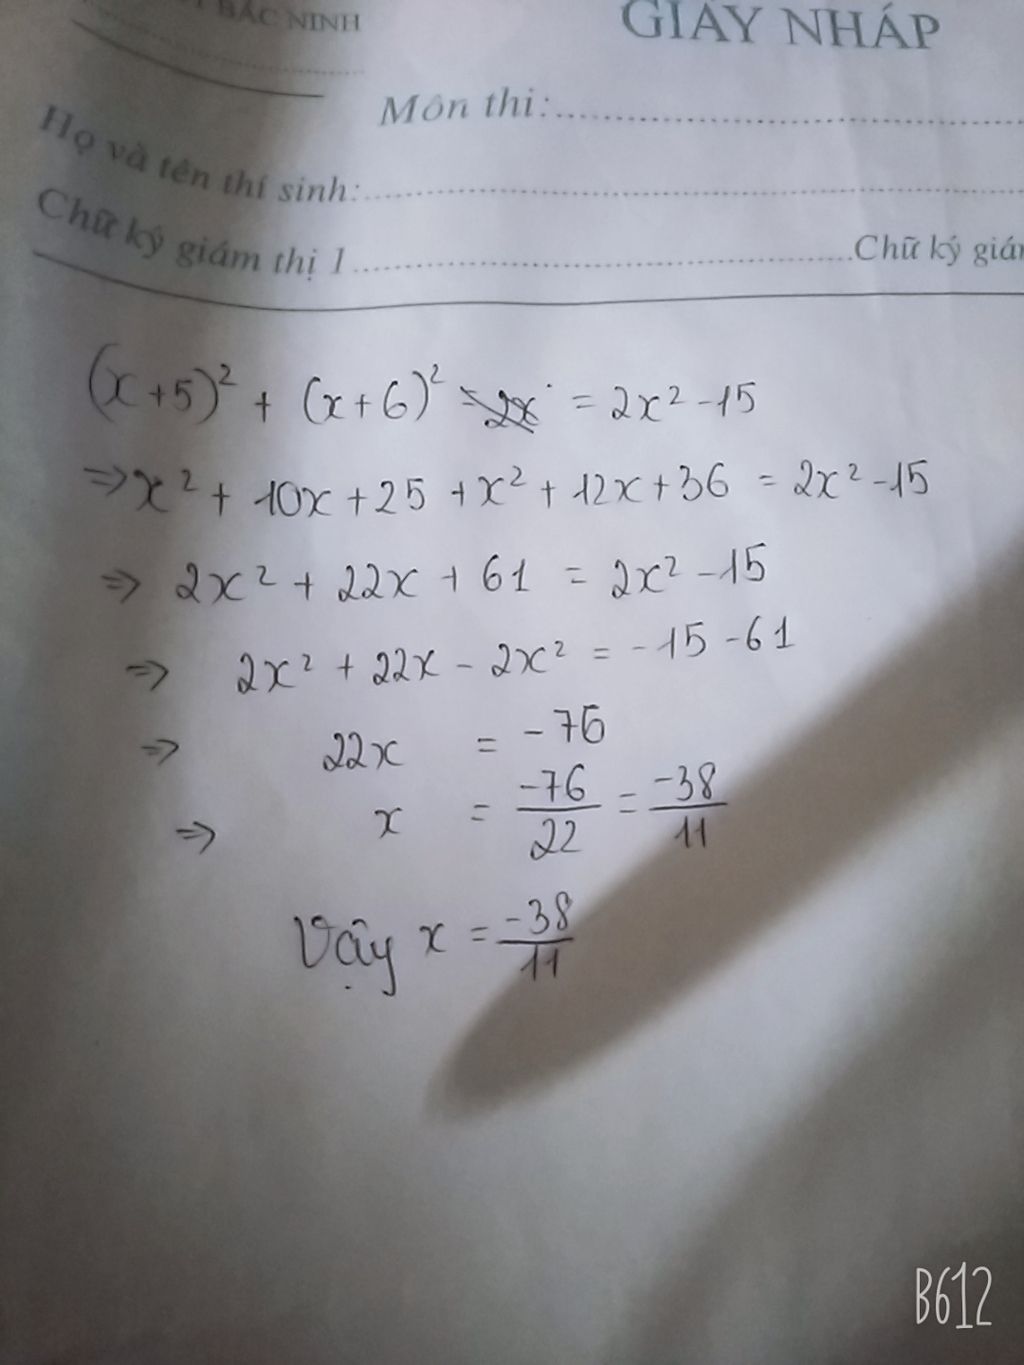 BẮC NINH
GIẤY NHÁP
Môn thi:
Họ và tên thí sinh:
Chữ ký giám thị 1 Chữ ký giám
(x+5)² + (x+6)² = 2x² - 15
⇒ x² + 10x + 25 + x² + 12x + 36 = 2x² - 15
⇒ 2x² + 22x + 61 = 2x² - 15
⇒ 2x² + 22x - 2x² = -15 - 61
⇒ 22x = -76
⇒ x = -76/22 = -38/11
Vậy x = -38/11
B612